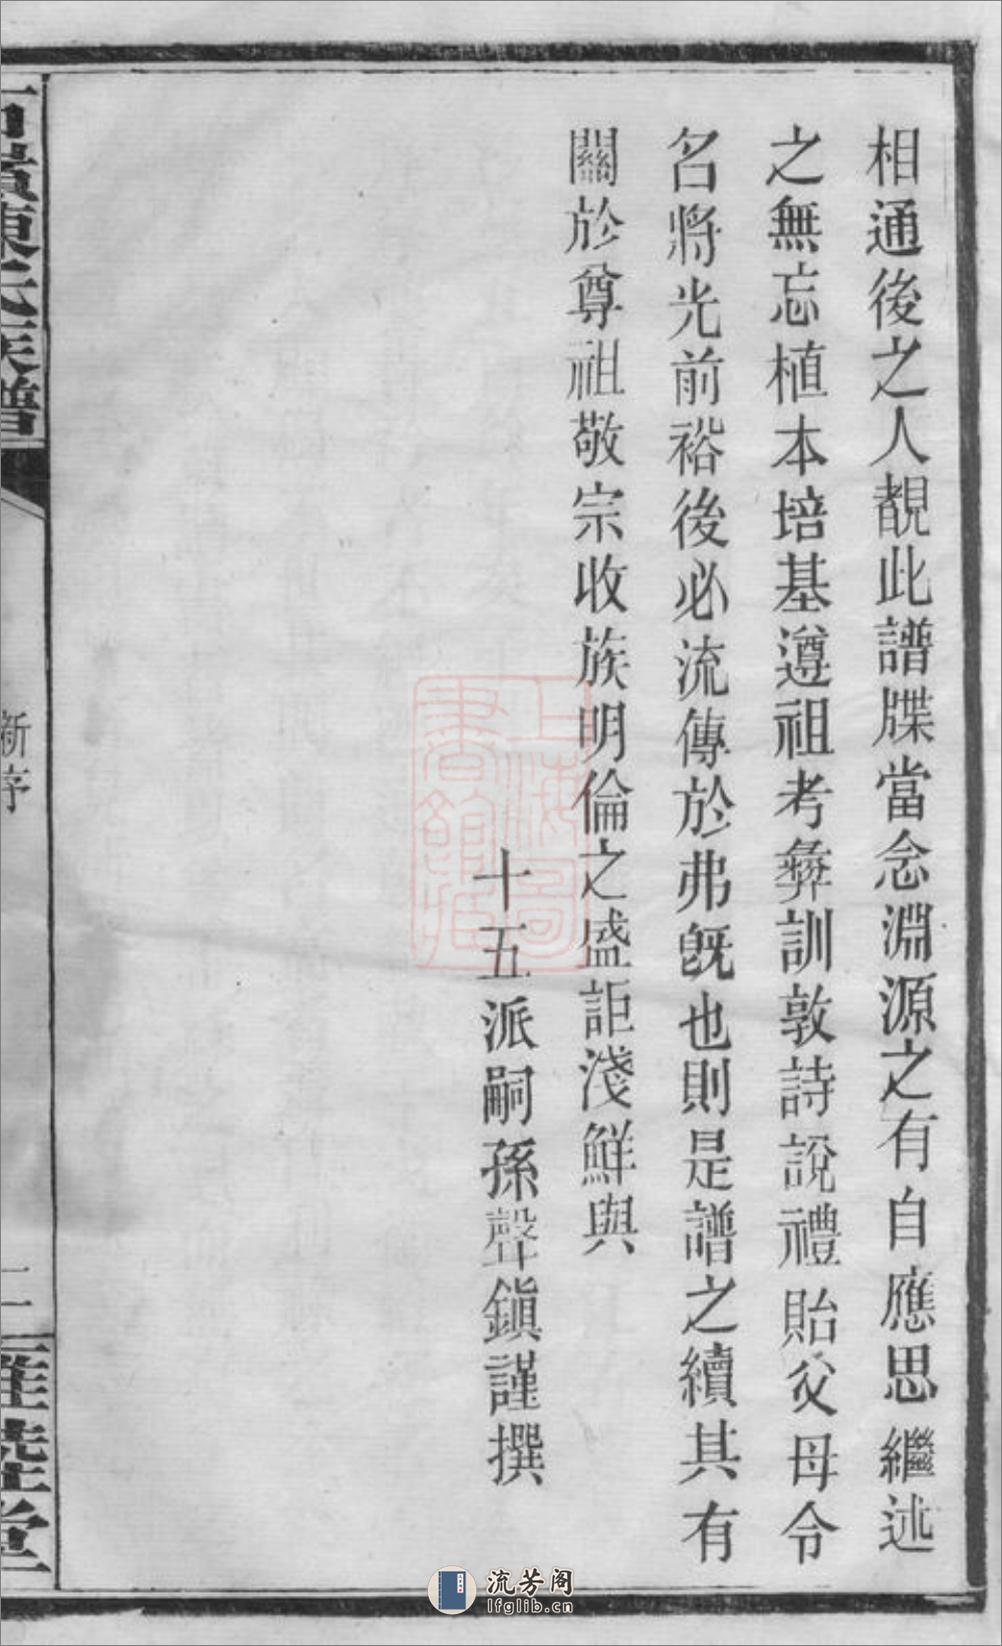 相通後之人覩此譜牒當念淵源之有自應思繼述
之無忘植本培基遵祖考彝訓敦詩說禮貽父母令
名將光前裕後必流傳於弗旣也則是譜之續其有
關於尊祖敬宗收族明倫之盛詎淺鮮與
十五派嗣孫聲鎭謹撰
陳氏族譜
新序
二
堂
上海圖書館藏
流芳阁
lfglib.cn